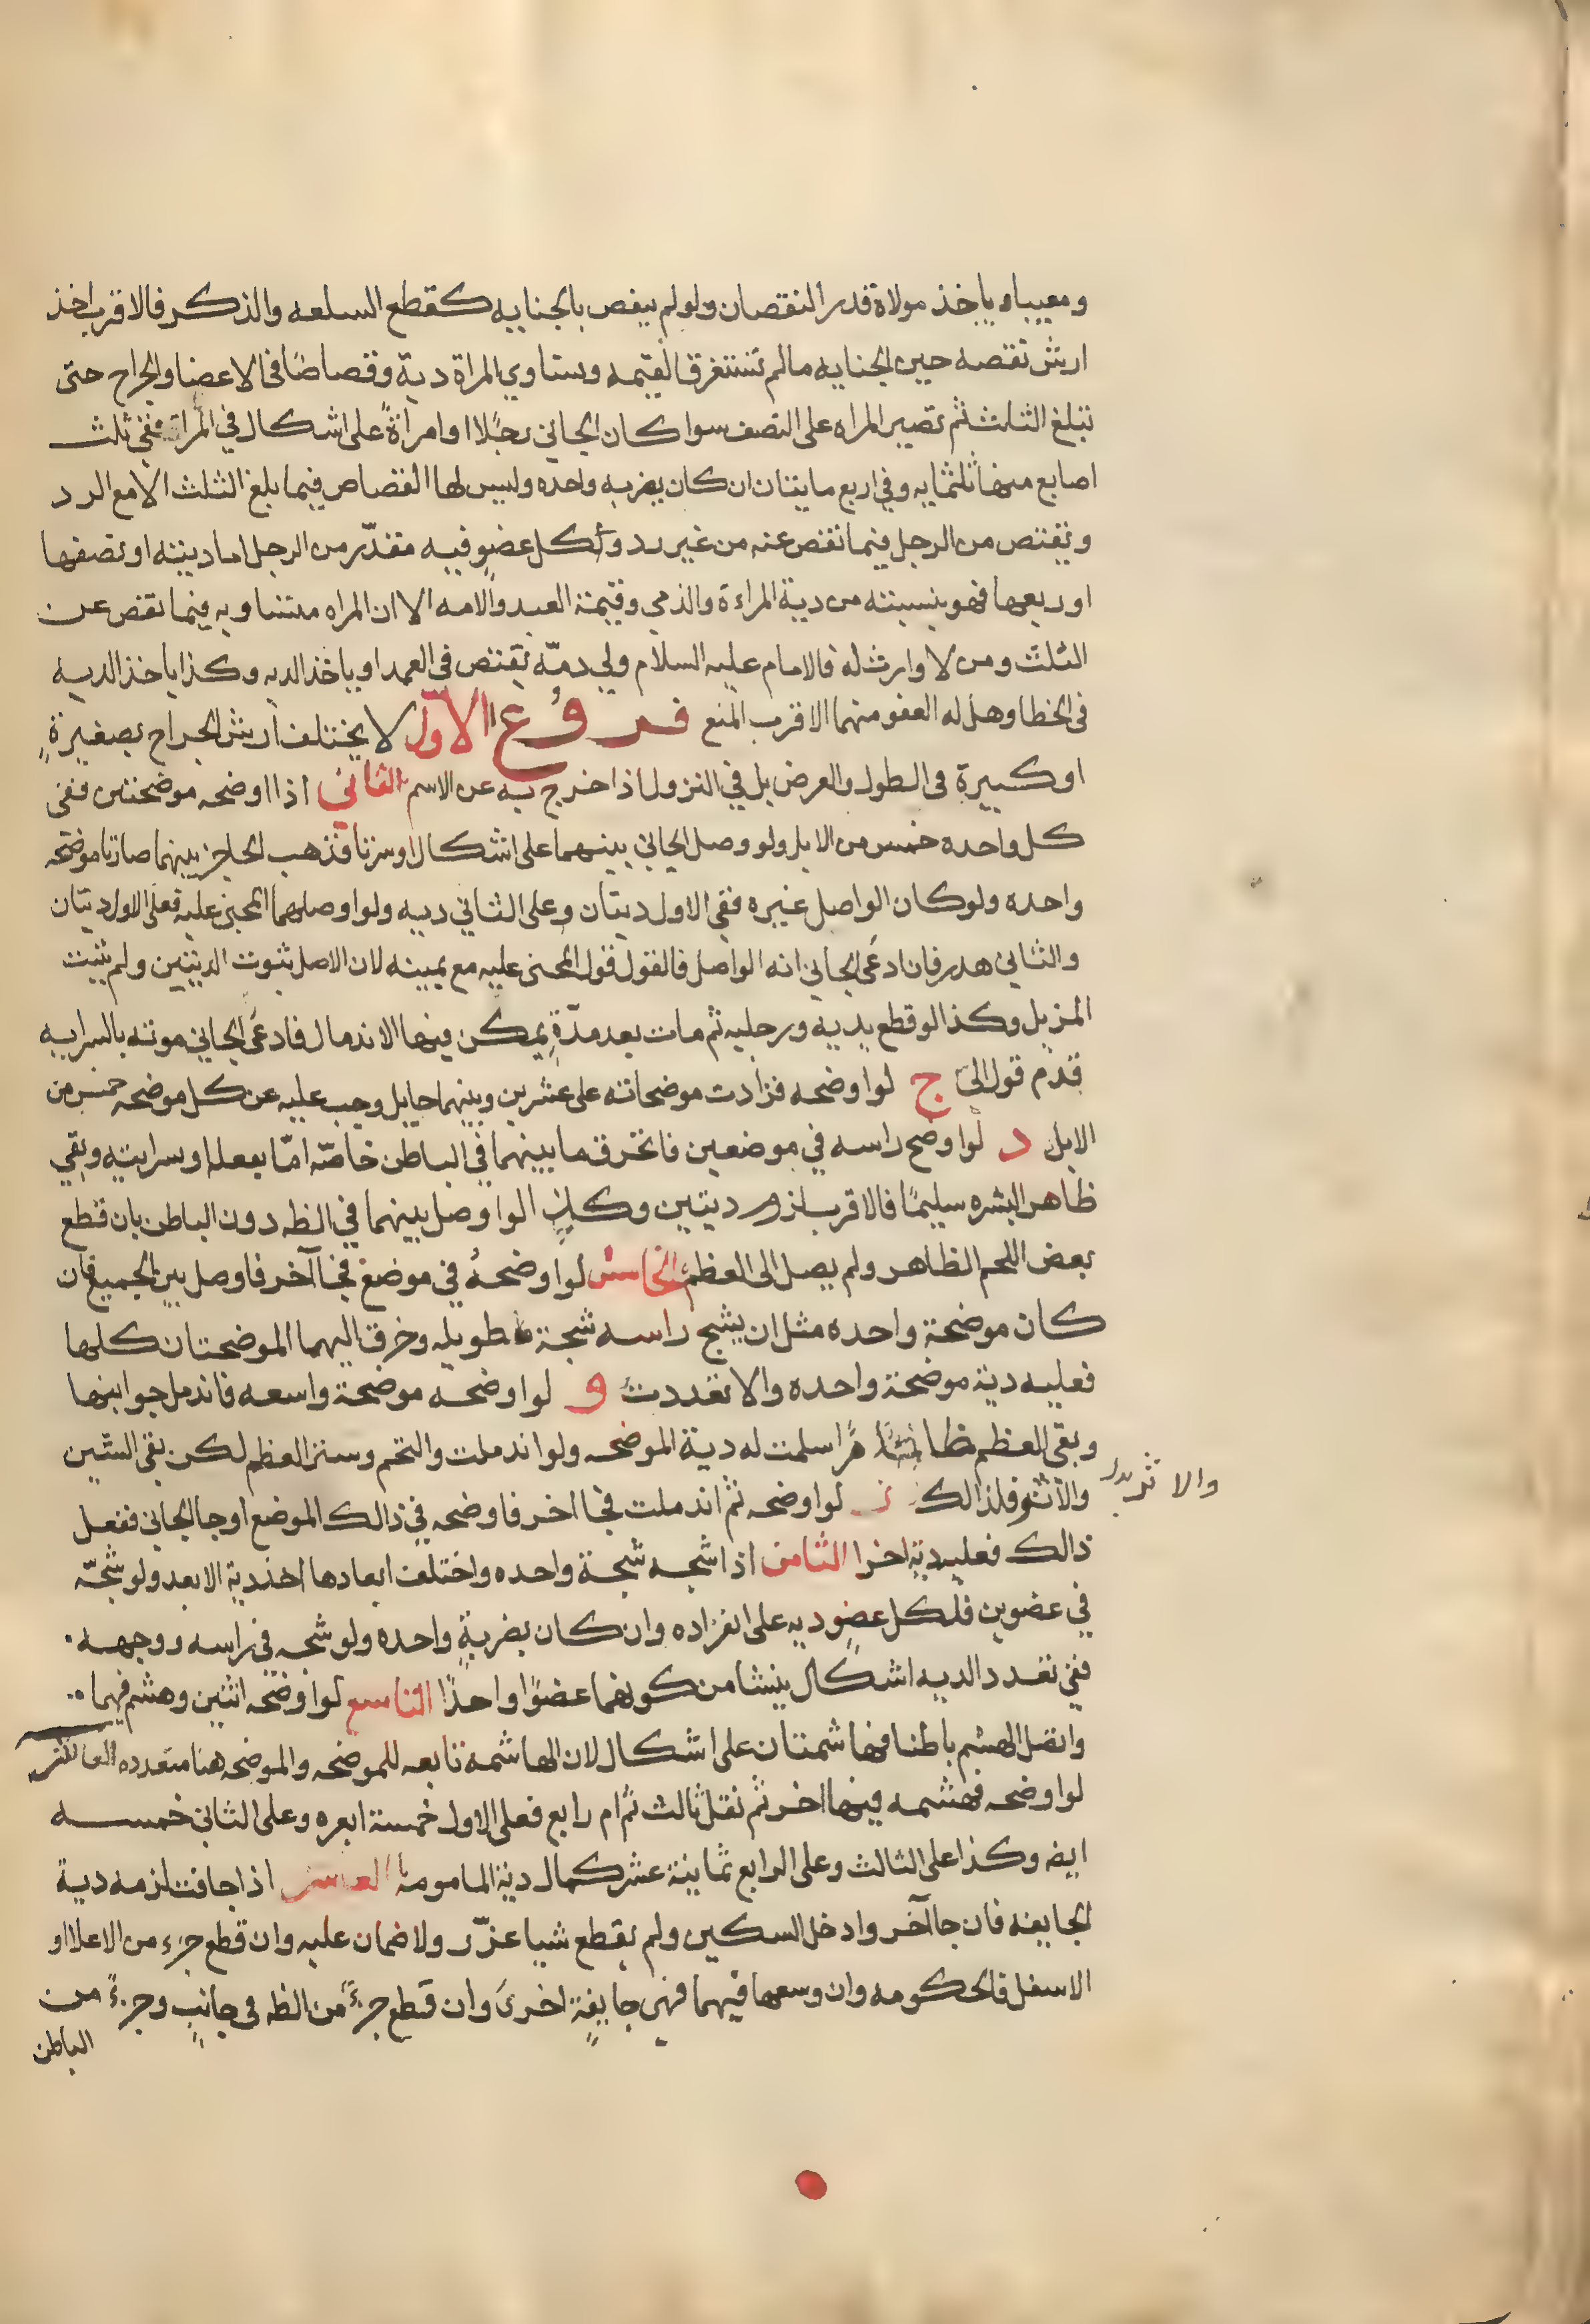 ومعيبا وياخذ مولاة قدر النقصان ولو لم ينقص بالجنايه كقطع السلعه والذكر فالاقرب اخذ
ارش نقصه حين الجنايه مالم تستغرق القيمه وتساوي المراة دية وقصاصًا في الاعضا والجراح حتى
تبلغ الثلث ثم تصير المراه على النصف سوا كان الجاني رجلًا او امراةً على اشكال في المراة ففي ثلث
اصابع منها ثلثمايه وفي اربع مايتان ان كان بضربه واحده وليس لها القصاص فيما بلغ الثلث الا مع الرد
ويقتص من الرجل فيما نقص عنه من غير رد وكل عضوٍ فيه مقدّر من الرجل اما ديته او نصفها
او ربعها فهو بنسبته من دية المراءة والذمي وقيمة العبد والامه الا ان المراه متساويه فيما نقص عن
الثلث ومن لا وارث له فالامام عليه السلام ولي دمّه يقتص في العمد او ياخذ الديه وكذا ياخذ الديه
في الخطا وهل له العفو منهما الاقرب المنع فروع الاول لا يختلف ارش الجراح بصغيرةٍ
او كبيرة في الطول والعرض بل في النزول اذا خرج به عن الاسم الثاني اذا اوضحه موضحتين ففي
كل واحده خمس من الابل ولو وصل الجاني بينهما على اشكال او سرتا فذهب الحاجز بينهما صارتا موضحه
واحده ولو كان الواصل غيره ففي الاول ديتان وعلى الثاني ديه ولو اوصلهما المجني عليه فعلى الاول ديتان
والثاني هدر فان ادعى الجاني انه الواصل فالقول قول المجني عليه مع يمينه لان الاصل ثبوت الديتين ولم يثبت
المزيل وكذا لو قطع يديه ورجليه ثم مات بعد مدّةٍ يمكن فيها الاندمال فادعى الجاني موته بالسرايه
قدم قول الي ج لو اوضحه فزادت موضحاته على عشرين وبينهما حايل وجب عليه عن كل موضحه خمس من
الابل د لو اوضح راسه في موضعين فانخرق ما بينهما في الباطن خاصّه امّا بفعله او سرايته وبقي
ظاهر البشره سليمًا فالاقرب لزوم ديتين وكذا لو اوصل بينهما في الظه دون الباطن بان قطع
بعض اللحم الظاهر ولم يصل الى العظم الخامس لو اوضحهُ في موضع فجا آخر فاوصل بين الجميع فان
كان موضحة واحده مثل ان يشج راسه شجة طويله وخرق اليهما الموضحتان كلها
فعليه دية موضحة واحده والا تعددت و لو اوضحه موضحة واسعه فاندمل جوانبها
وبقى العظم ظاهرًا سلمت له دية الموضحه ولو اندملت والتحم وستر العظم لكن بقى الشين
والاثر فلذالك ز لو اوضحه ثم اندملت فجا اخر فاوضحه في ذالك الموضع او جا الجاني ففعل
والاثر
ذالك فعليه دية اخرا الثامن اذا شجه شجة واحده واختلف ابعادها اخذ دية الابعد ولو شجّه
في عضوين فلكل عضوٍ ديه على انفراده وان كان بضربةٍ واحده ولو شجه في راسه ووجهه
ففي تعدد الديه اشكال ينشا من كونهما عضوًا واحدًا التاسع لو اوضحه اثنين وهشم فيهما
واتصل الهشم باطنا فهاشمتان على اشكال لان الهاشمه تابعه للموضحه والموضحه هنا متعدده العاشر
لو اوضحه فهشمه فيها اخر ثم نقل ثالث ثم ام رابع فعلى الاول خمسة ابعره وعلى الثاني خمسه
ايضه وكذا على الثالث وعلى الرابع ثمانية عشر كمال دية المامومه العاشر اذا جافت لزمه دية
الجايفه فان جا آخر وادخل السكين ولم يقطع شيا عزّر ولا ضمان عليه وان قطع جزء من الاعلا او
الاسفل فالحكومه وان وسعها فيهما فهي جايفة اخرى وان قطع جزءً من الظه في جانبٍ وجزءً من
الباطن